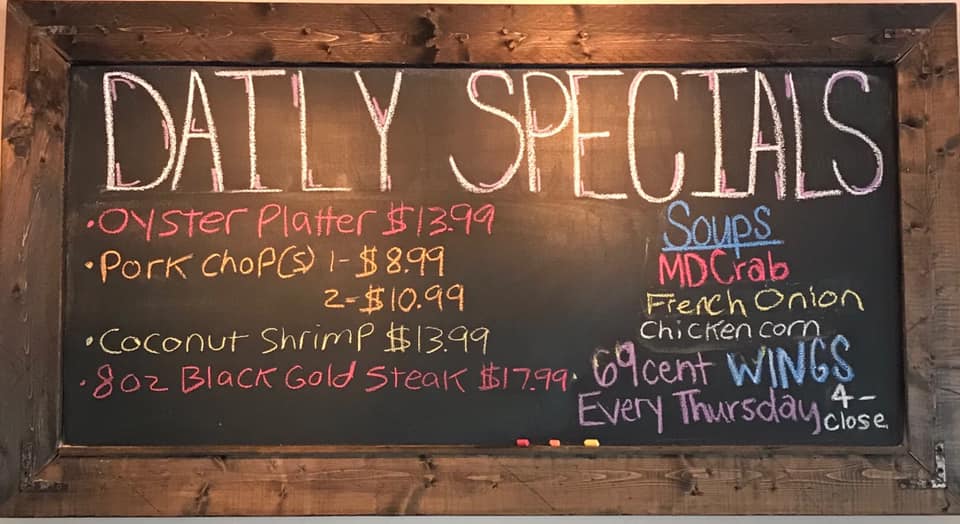 DAILY SPECIALS
• Oyster Platter $13.99
• Pork Chop(s) 1-$8.99
2-$10.99
• Coconut Shrimp $13.99
• 8oz Black Gold Steak $17.99
Soups
MD Crab
French Onion
Chicken corn
69 cent WINGS
Every Thursday 4-
Close